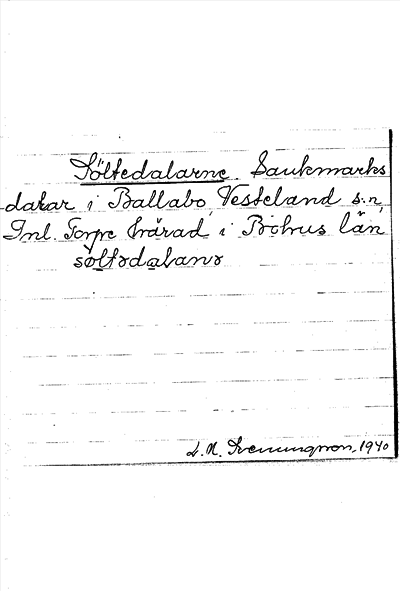 Söltedalarne Saukmarks
dalar i Ballabo, Vesteland s.n,
Inl. Torpe härad i Bohus län
søltədalanə
L. N. Svenungsson, 1940